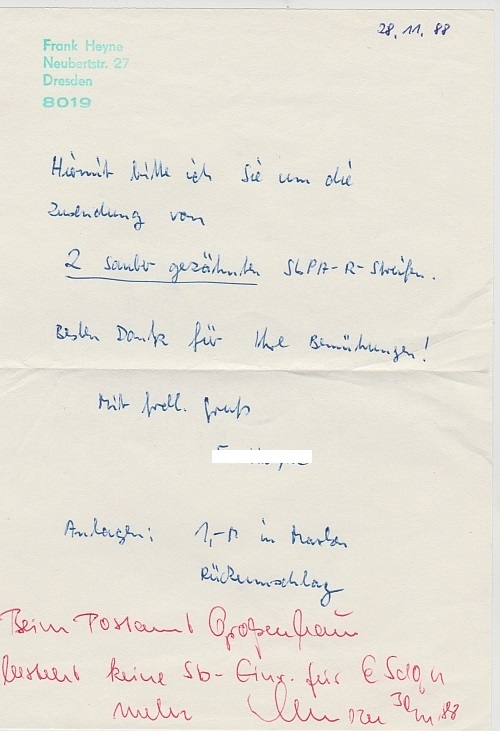 28.11.88
Frank Heyne
Neubertstr. 27
Dresden
8019
Hiermit bitte ich Sie um die
Zusendung von
2 sauber gezähnten SbPA-R-Streifen.
Besten Dank für Ihre Bemühungen!
Mit frdl. Gruß
Anlagen: 1,-M in Marken
Rückumschlag
Beim Postamt Großenhain
besteht keine Sb-Einr. für
mehr